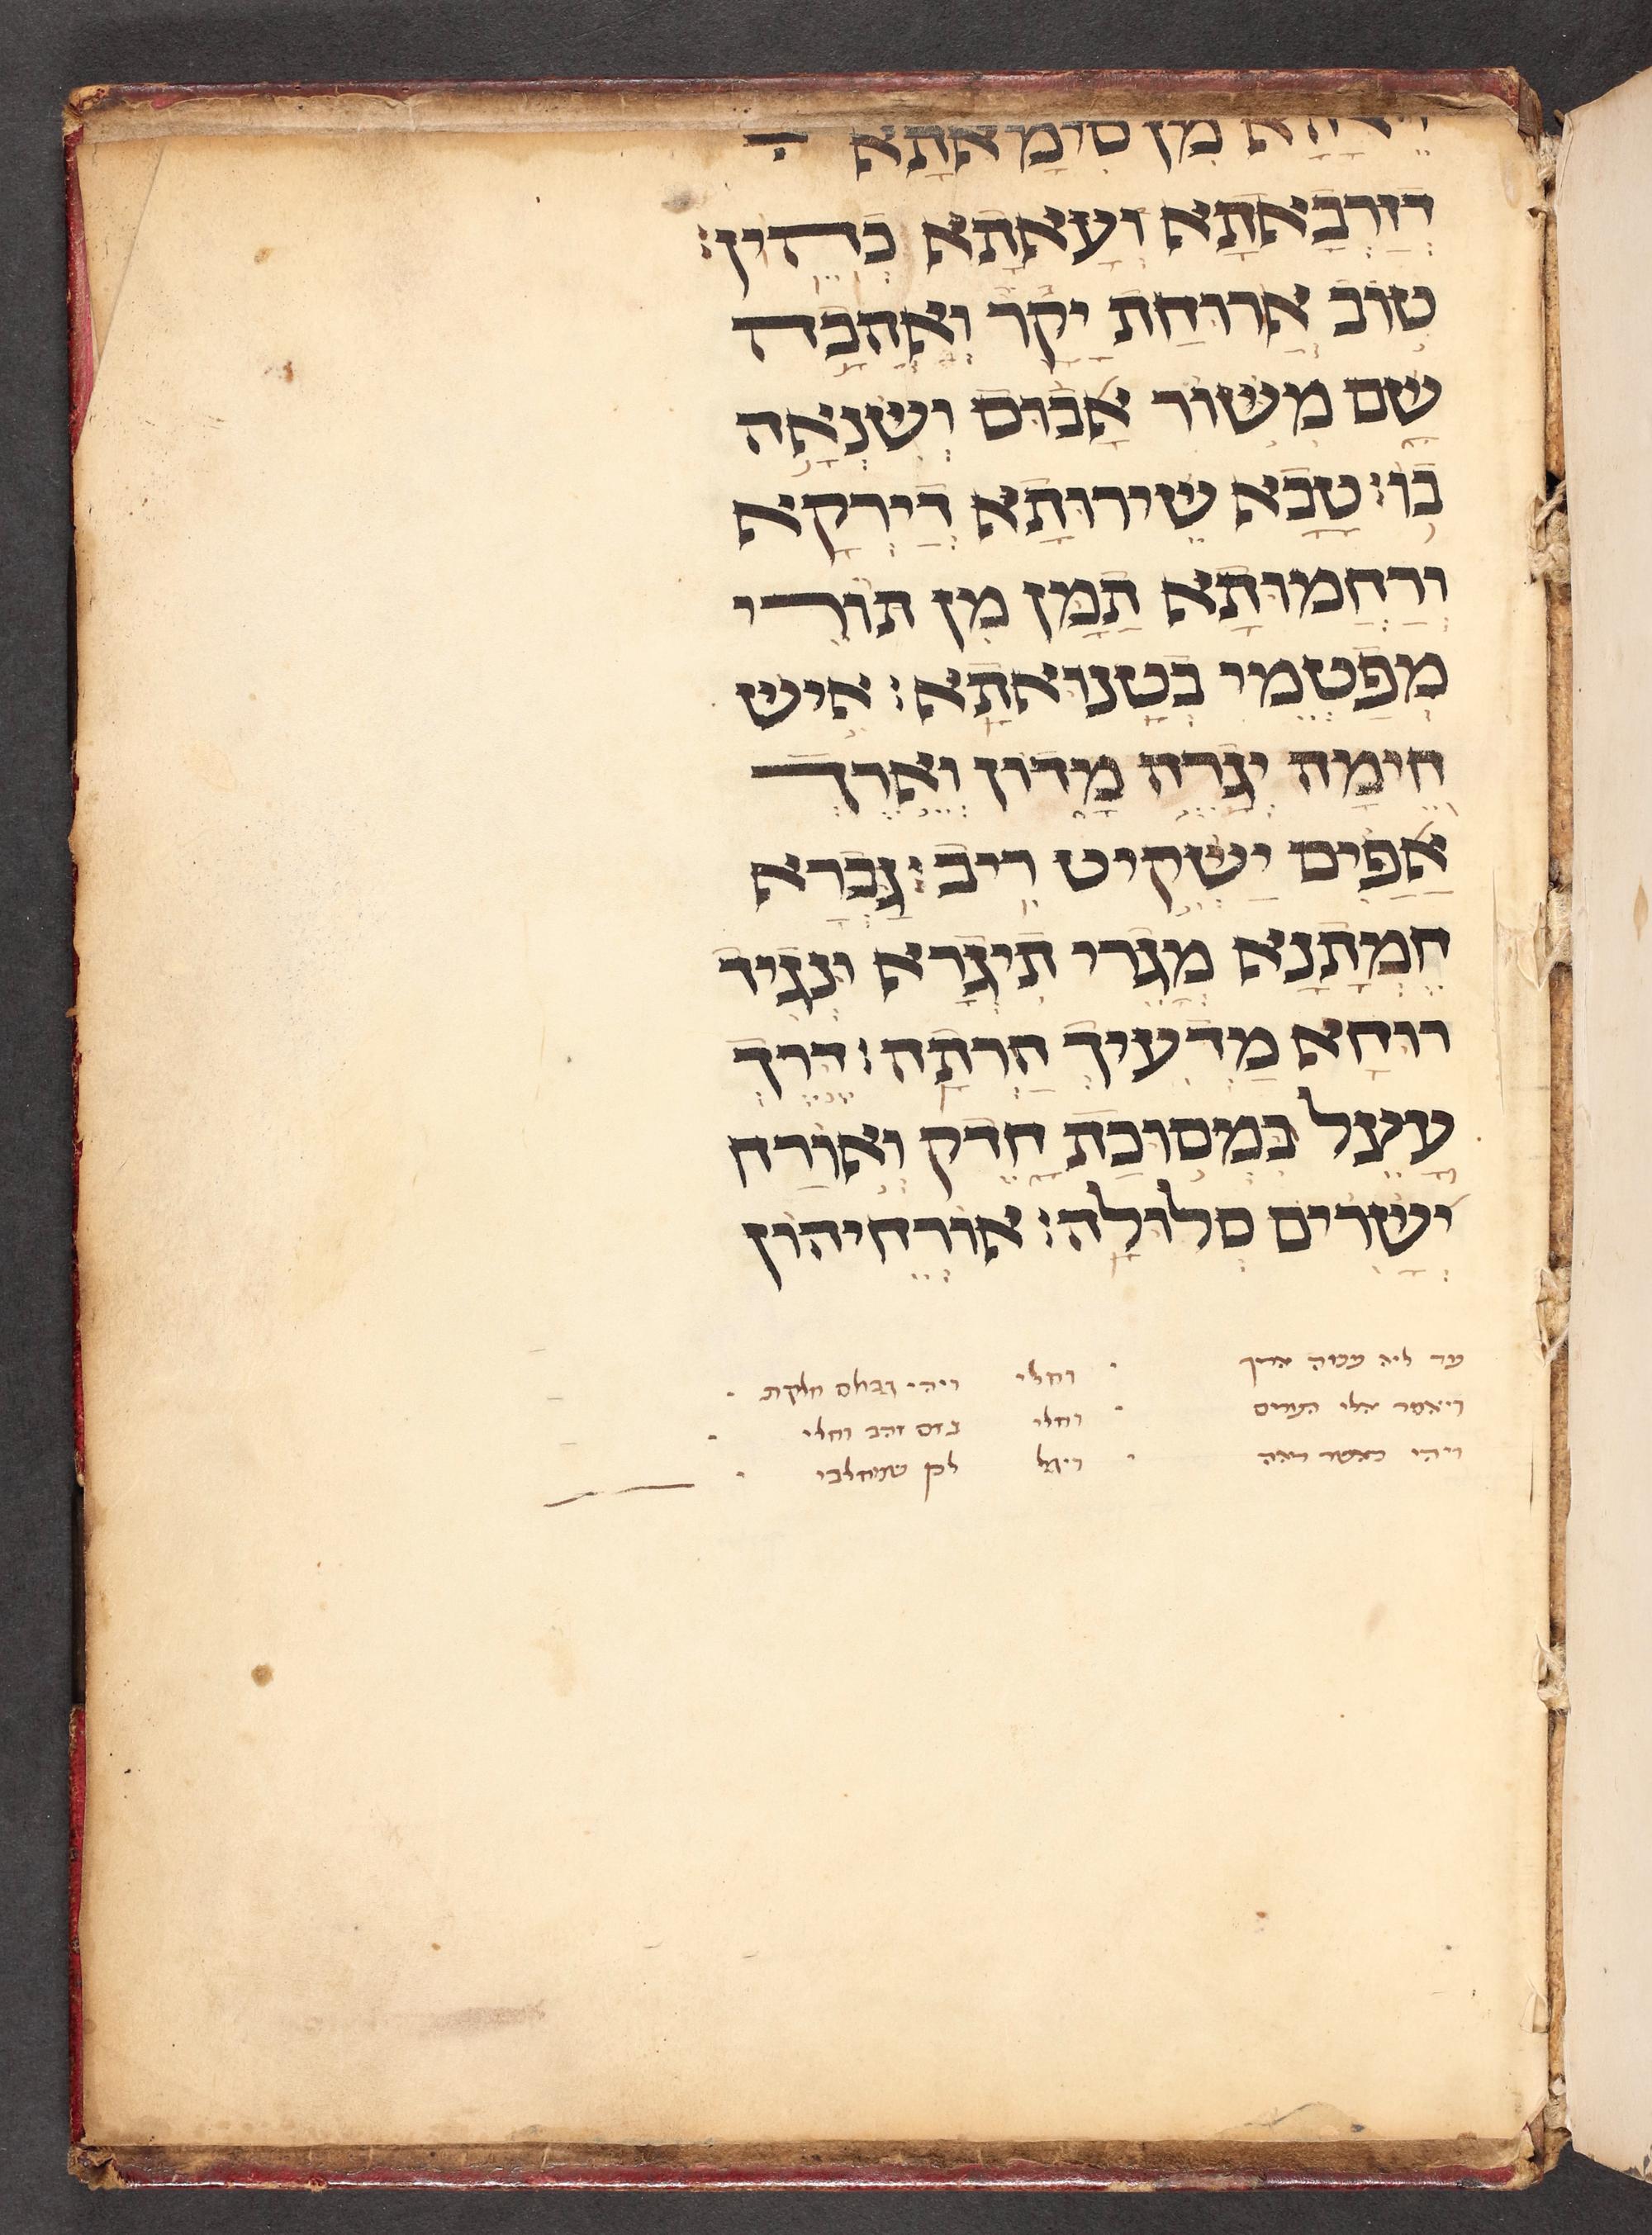 מִן סִימָאתָא ד
דְּזַרְבָאתָא וְעָאתָא כְּהֵין׃
טוֹב אֲרוּחַת יָקָר וְאַהֲבָה
שָׁם מִשּׁוֹר אָבוּס וְשִׂנְאָה
בוֹ׃ טָבָא שֵׁירוּתָא דְיַרְקָא
וְרַחֲמוּתָא תַמָּן מִן תּוֹרֵי
מְפַטְּמֵי בְּטָנוּאתָא׃ אִישׁ
חֵימָה יְגָרֶה מָדוֹן וְאֶרֶךְ
אַפַּיִם יַשְׁקִיט רִיב׃ גַּבְרָא
חֵמְתָנָא מְגָרֵי תִּיגְרָא וּנְגִיד
רוּחָא מַדְעִיךְ חַרְתָה׃ דֶּרֶךְ
עָצֵל כִּמְסוּכַת חָדֶק וְאוֹרַח
יְשָׁרִים סְלוּלָה׃ אוֹרְחֵיהוֹן
וחלי ויהי גבולם חלקת
ויאמר אלי
וחלי נזם זהב וחלי
ויהי כאשר ראה ויגל לכן שמח לבי